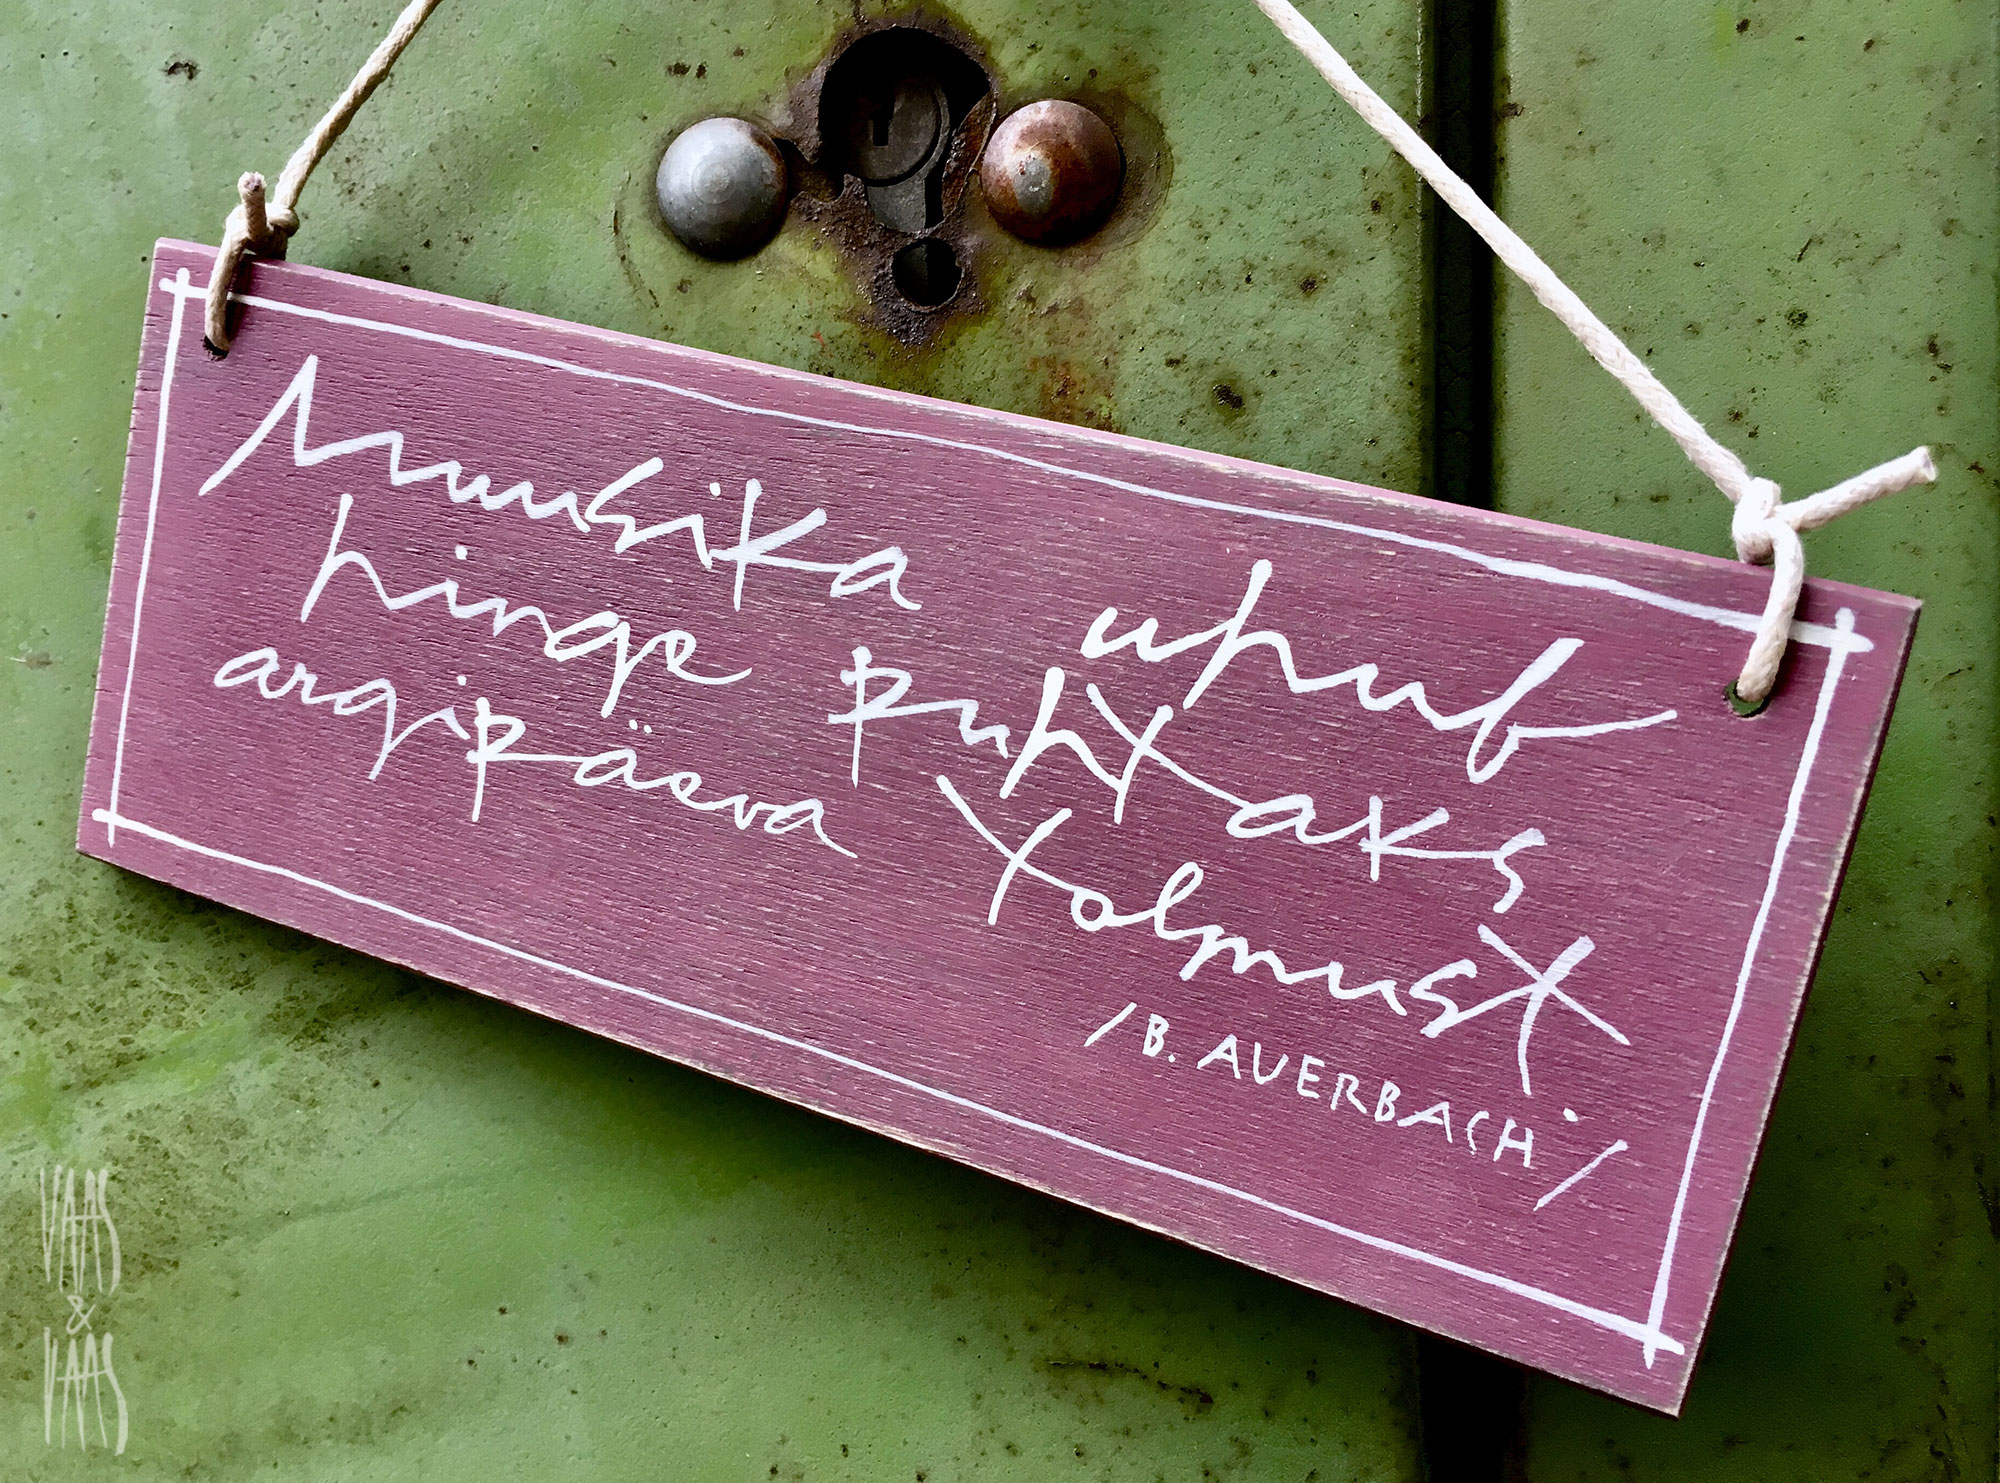 Muusika uhub
hinge puhtaks
argipäeva tolmust.
/B. AUERBACH/
VAAS
&
VAAS